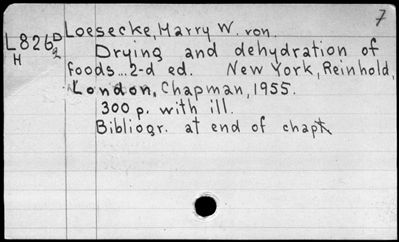 7
L826D Loesecke, Marry W. von.
H 2 Drying and dehydration of
foods...2-d ed. New York, Reinhold,
London, Chapman, 1955.
300 p. with ill.
Bibliogr. at end of chapt